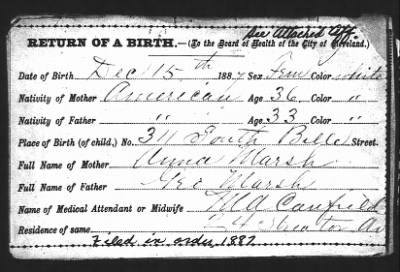 See Attached Aff.
RETURN OF A BIRTH.—(To the Board of Health of the City of Cleveland.)
Date of Birth Dec 15th 1887 Sex Fem Color White
Nativity of Mother American Age 36 Color "
Nativity of Father " " Age 33 Color "
Place of Birth (of child,) No. 311 South Belle Street.
Full Name of Mother Anna Marsh
Full Name of Father Geo Marsh
Name of Medical Attendant or Midwife M A Canfield
Residence of same 24 Av
Filed in order 1887